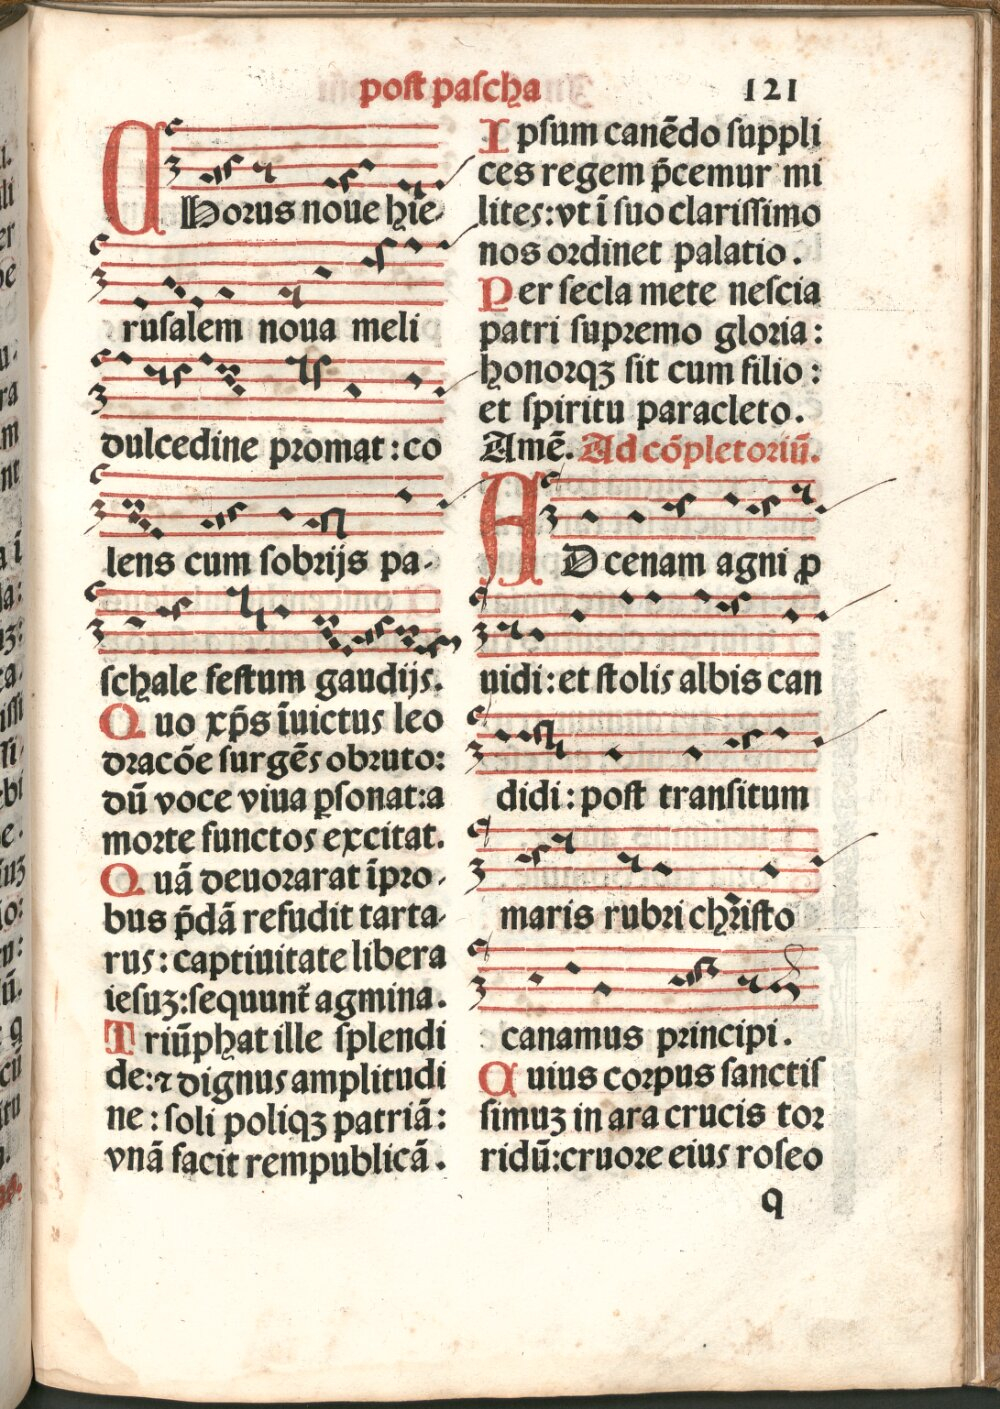 post pascha 121
CHorus noue hie-
rusalem noua meli
dulcedine promat : co
lens cum sobrijs pa-
schale festum gaudijs.
Quo xp̄s īuictus leo
dracōe surgēs obruto:
dū voce viua ꝑsonat:a
morte functos excitat.
Quā deuorarat īpro-
bus p̄dā refudit tarta-
rus : captiuitate libera
iesuꝫ:sequunt᷑ agmina.
Triūphat ille splendi
de:⁊ dignus amplitudi
ne : soli poliqꝫ patriā :
vnā facit rempublicā.
Ipsum canēdo suppli
ces regem p̄cemur mi
lites:vt ī suo clarissimo
nos ordinet palatio.
Per secla mete nescia
patri supremo gloria :
honorqꝫ sit cum filio :
et spiritu paracleto.
Amē. Ad cōpletoriū.
AD cenam agni ꝓ
uidi : et stolis albis can
didi : post transitum
maris rubri christo
canamus principi.
Cuius corpus sanctis
simuꝫ in ara crucis tor
ridū:cruore eius roseo
q